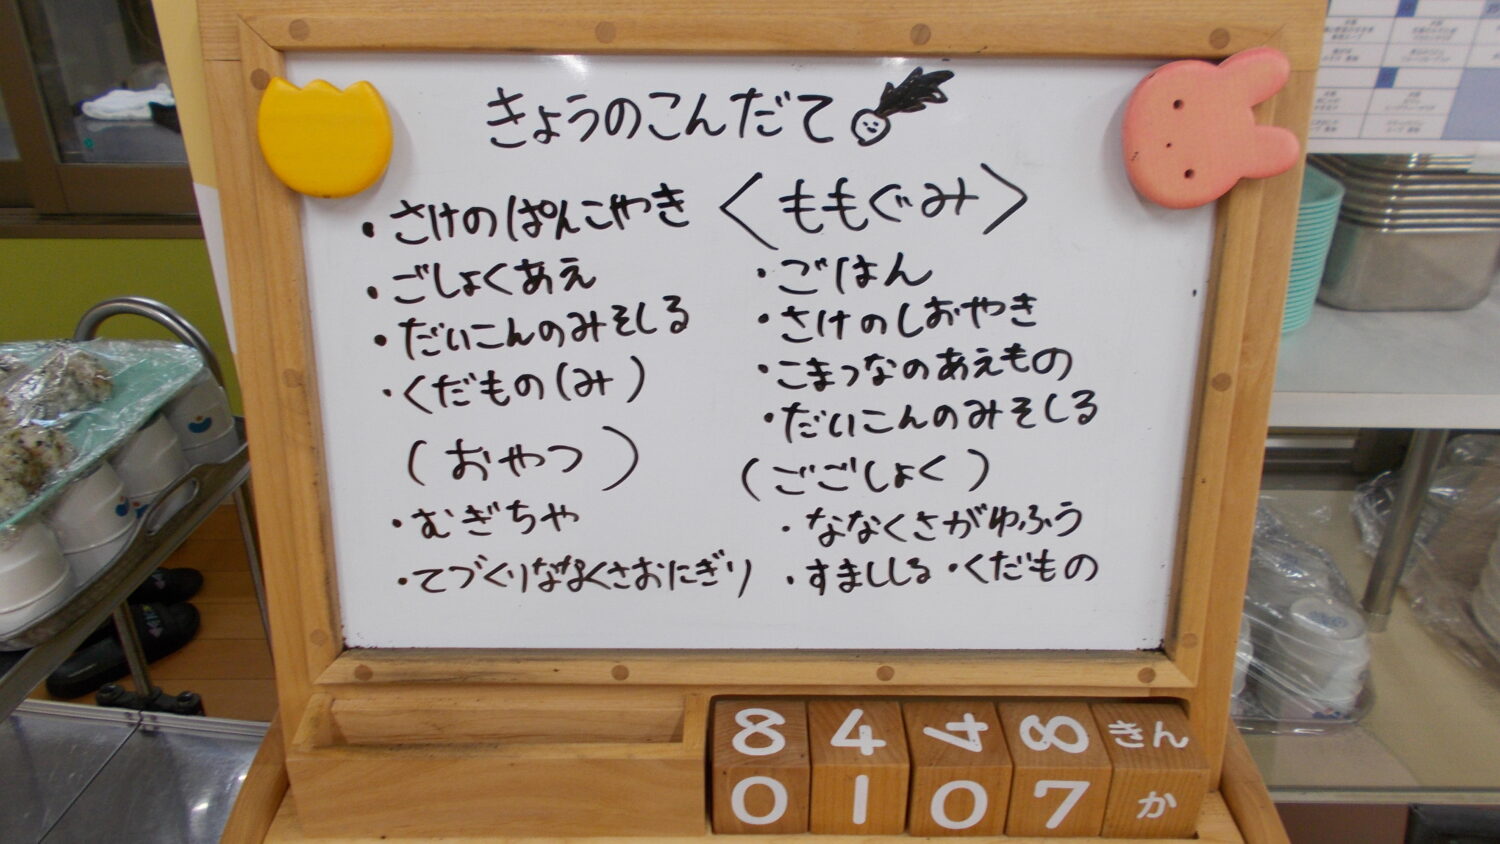 きょうのこんだて
・さけのぱんこやき
・ごしょくあえ
・だいこんのみそしる
・くだもの(み)
(おやつ)
・むぎちゃ
・てづくりななくさおにぎり
〈ももぐみ〉
・ごはん
・さけのしおやき
・こまつなのあえもの
・だいこんのみそしる
(ごごしょく)
・ななくさがゆふう
・すましじる・くだもの
8 4 4 8 きん
0 1 0 7 か